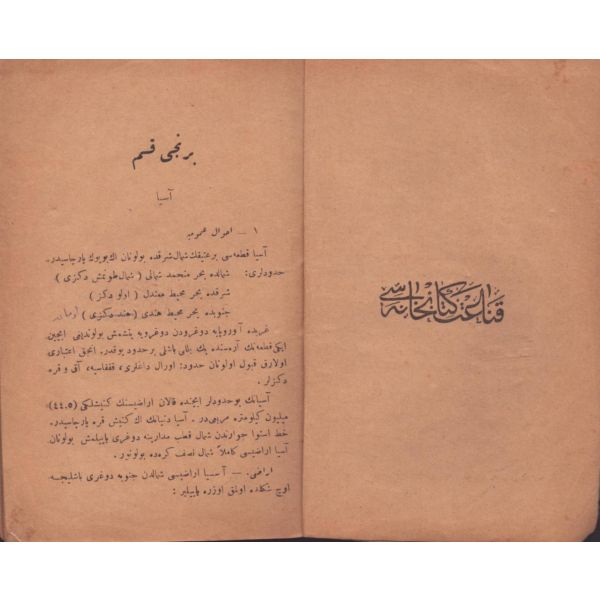 قناعت كتابخانه‌سی
برنجی قسم
آسیا
۱ — احوال عمومیه
آسیا قطعه‌سی بر عتیقك شمال شرقنده بولونان اك بویوك پارچه‌سیدر.
حدودلری: شمالده بحر منجمد شمالی ( شمال طوكمش دكزی )
شرقده بحر محیط معتدل ( اولو دكز )
جنوبده بحر محیط هندی (هند دكزی)
غربده آوروپایه دوغرودن دوغرویه بتشمش بولوندیغی ایچین
ایكی قطعه‌نك آره‌سنده پك بللی باشلی بر حدود یوقدر. آنجق اعتباری
اولارق قبول اولونان حدود: اورال داغلری، قفقاسیه، آق و قره
دكزلر.
آسیانك بو حدودلر ایچنده قالان اراضیسنك كنیشلكی (٤٤،٥)
میلیون كیلومتره مربعی‌در. آسیا دنیانك اك كنیش قره پارچه‌سیدر.
خط استوا جوارندن شمال قطب مدارینه دوغری یاییلمش بولونان
آسیا اراضیسی كاملاً شمال نصف كره‌ده بولونیور.
اراضی. — آسیا اراضیسی شمالدن جنوبه دوغری باشلیجه
اوچ شكلده اولمق اوزره یاییلیر :